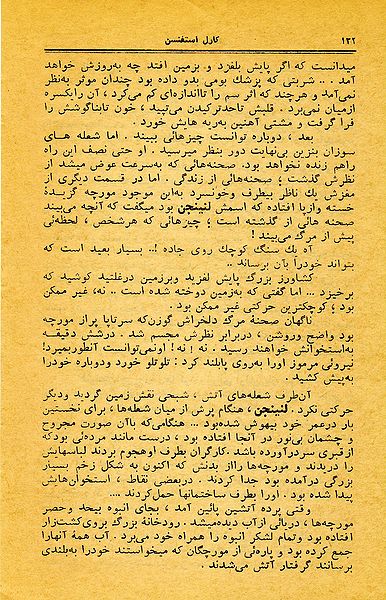 ۱۲۲ کارل استفنسن
میدانست که اگر پایش بلغزد و بزمین افتد چه به‌روزش خواهد
آمد . .. شربتی که پزشك بومی بدو داده بود چندان موثر به‌نظر
نمی‌آمد و هرچند که اثر سم را تااندازه‌ای کم می‌کرد ، آن رایکسره
ازمیان نمی‌برد . قلبش تاحدترکیدن می‌تپید ، خون تابناگوشش را
فرا گرفت و مشتی آهنین به‌ریه هایش خورد .
بعد ، دوباره توانست چیزهائی ببیند . اما شعله های
سوزان بنزین بی‌نهایت دور بنظر میرسید . او حتی نصف این راه
راهم زنده نخواهد بود. صحنه‌هائی که به‌سرعت عوض میشد از
نظرش گذشت ، صحنه‌هائی از زندگی . اما در قسمت دیگری از
مغزش یك ناظر بیطرف وخونسرد به‌این موجود مورچه گزیدهٔ
خسته وازپا افتاده که اسمش لنینجن بود میگفت که آنچه می‌بیند
صحنه هائی از گذشته است ؛ چیزهائی که هرشخص ، لحظه‌ئی
پیش از مرگ می‌بیند !
آه یك سنگ کوچك روی جاده !.. بسیار بعید است که
بتواند خودرا بآن برساند .
کشاورز بزرگ پایش لغزید وبرزمین درغلتید کوشید که
برخیزد ... اما گفتی که به‌زمین دوخته شده است .. نه، غیر ممکن
بود ؛ کوچکترین حرکتی غیر ممکن بود .
ناگهان صحنهٔ مرگ دلخراش گوزن‌که سرتاپا پراز مورچه
بود واضح وروشن ، دربرابر نظرش مجسم شد . درشش دقیقه
به‌استخوانش خواهند رسید. نه ! نه ! اونمی‌توانست آنطوربمیرد!
نیروئی مرموز اورا به‌روی پابلند کرد : تلوتلو خورد ودوباره خودرا
به‌پیش کشید .
آن‌طرف شعله‌های آتش ، شبحی نقش زمین گردید ودیگر
حرکتی نکرد . لنینجن ، هنگام پرش از میان شعله‌ها ، برای نخستین
بار درعمر خود بیهوش شده‌بود ... هنگامی‌که باآن صورت مجروح
و چشمان بی‌نور در آنجا افتاده بود ، درست مانند مرده‌ئی بودکه
ازقبری سردرآورده باشد .کارگران بطرف اوهجوم بردند لباسهایش
را دریدند و مورچه‌ها رااز بدنش که اکنون به شکل زخم بسیار
بزرگی درآمده بود جدا کردند . دربعضی نقاط ، استخوان‌هایش
پیدا شده بود . اورا بطرف ساختمانها حمل‌کردند ....
وقتی پرده آتشین پائین آمد ، بجای انبوه بیحد وحصر
مورچه‌ها ، دریائی ازآب دیده‌میشد . رودخانه بزرگ بروی‌کشت‌زار
افتاده بود وتمام لشکر انبوه را همراه خود می‌برد . آب همهٔ آنهارا
جمع کرده بود و پاره‌ئی از مورچگان که میخواستند خودرا به‌بلندی
برسانند گرفتار آتش می‌شدند .